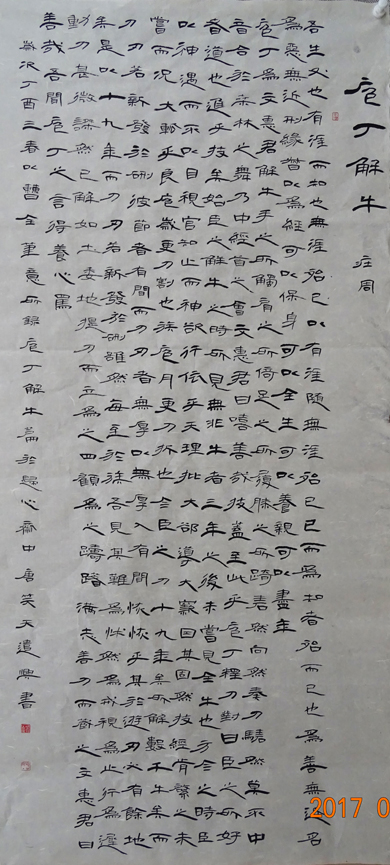 庖丁解牛 莊周
吾生也有涯而知也無涯殆已以有涯隨無涯殆已已而為知者殆而已也為善無近名
為惡無近刑緣督以為經可以保身可以全生可以養親可以盡年
庖丁為文惠君解牛手之所觸肩之所倚足之所履膝之所踦砉然向然奏刀騞然莫不中
音合於桑林之舞乃中經首之會文惠君曰嘻善哉技蓋至此乎庖丁釋刀對曰臣之所好
者道也進乎技矣始臣之解牛之時所見無非牛者三年之後未嘗見全牛也方今之時臣
以神遇而不以目視官知止而神欲行依乎天理批大郤導大窾因其固然技經肯綮之未
嘗而況大軱乎良庖歲更刀割也族庖月更刀折也今臣之刀十九年矣所解數千牛矣而
刀刃若新發於硎彼節者有間而刀刃者無厚以無厚入有間恢恢乎其於遊刃必有餘地
矣是以十九年而刀刃若新發於硎雖然每至於族吾見其難為怵然為戒視為止行為遲
動刀甚微謋然已解如土委地提刀而立為之四顧為之躊躇滿志善刀而藏之文惠君曰
善哉吾聞庖丁之言得養心焉
歲次丁酉三春以曹全筆意所錄庖丁解牛篇於心齋中唐笑天遣興書
2017 0